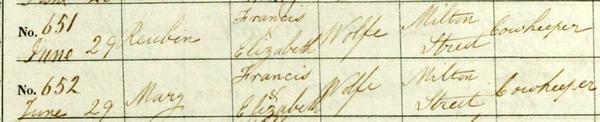 No. 651 Francis Milton
June 29 Reuben Elizabeth Wolfe Street Cowkeeper
No. 652 Francis Milton
June 29 Mary & Elizabeth Wolfe Street Cowkeeper